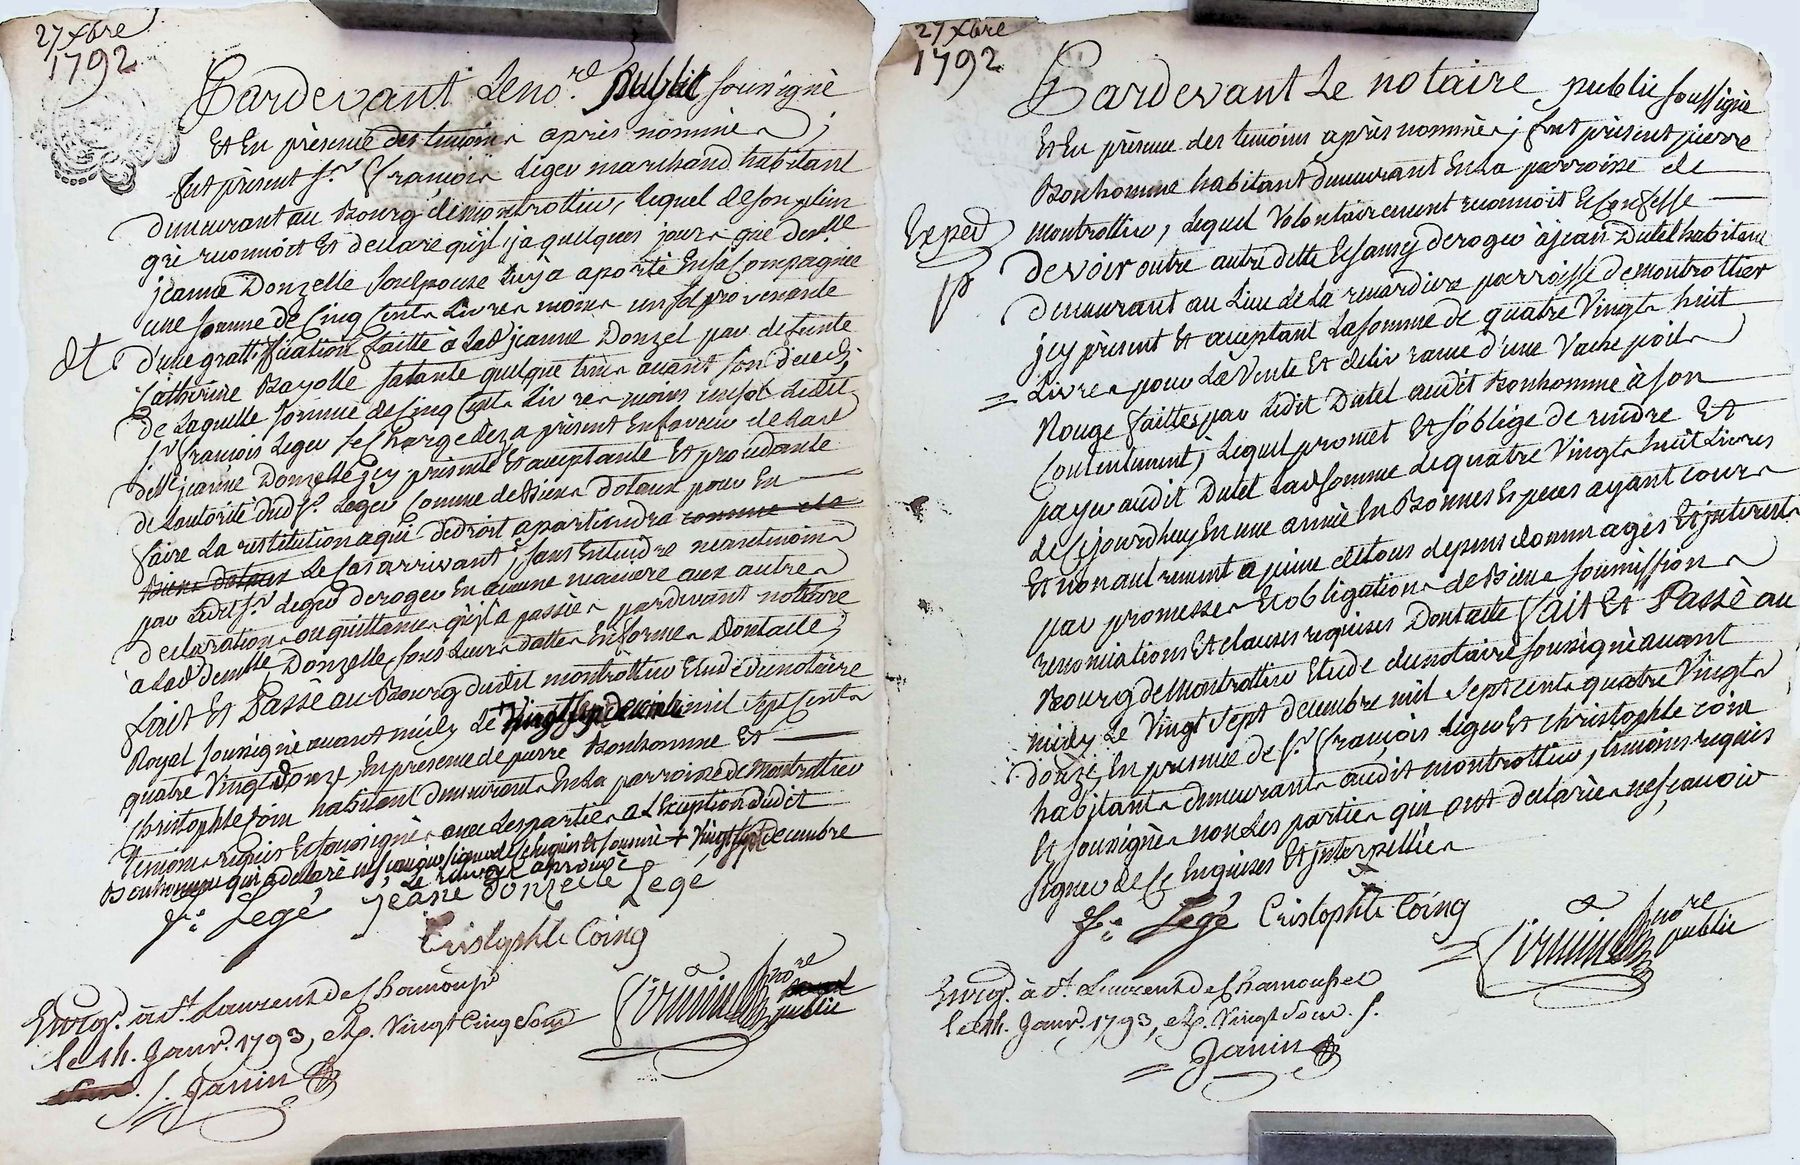 27 Xbre
1792
Pardevant Le no.re public sousigné
Et En présence des temoins après nommés ;
fut présent Sr François Leger marchand habitant
demeurant au Bourg de montrottier, lequel de son plein
gré reconnoit Et declare qu'il y a quelques jours que demlle
jeanne Donzelle son Epouse luy a aporté En sa Compagnie
une somme de Cinq Cents Livres moins un sol provenante
d'une gratiffication faitte à lad jeanne Donzel par defunte
Catherine Bazolle sa tante quelque tems avant son décès,
de Laquelle somme de Cinq Cents Livres moins un sol Ledit
Sr françois Leger se Charge dez a présent En faveur de Lad
delle jeanne Donzelle jcy présente Et aceptante Et procedante
de Lautorité dud Sr Leger Comme de Biens dotaux pour En
faire La restitution a qui de droit apartiendra comme de
Biens dotaux Le Cas arrivant, sans Entendre neantmoins
par Ledit Sr Leger deroger En aucune maniere aux autres
declarations ou quittances qu'il a passées pardevant notaire
a lad demlle Donzelle, sous Leurs dattes En formes Dont acte ;
fait Et Passé au Bourg dudit montrottier Etude du notaire
Royal sousigné avant midy Le Vingt sep decembre mil sept Cents
quatre Vingt Douze, En présence de pierre Bonhomme Et
Christophle Coin habitant demeurants En La parroisse de Montrottier
temoins requis Et sousignés avec Les parties a L'Exception dudit
Bonhomme qui a declaré ne sçavoir signer de ce Enquis Et sommé + Vingt sept decembre
Le renvoye aprouvé
fs Legé jeane donzelle Legé
Cristophle Coing
nore
public
Enreg. à St. Laurent de Chamousset
le 11. Janvr. 1793, Rp. Vingt Cinq Sous
S. Janin
27 Xbre
1792
Pardevant Le notaire public soussigné
Et En présence des temoins après nommés ; fut présent pierre
Bonhomme habitant demeurant En La parroisse de
Exped
montrottier, Lequel Volontairement reconnoit Et Confesse
devoir outre autre dette Et sans y deroger à jean Dutel habitant
demeurant au Lieu de La renardiere parroisse de montrottier
jcy présent Et aceptant La somme de quatre Vingts huit
Livres pour La Vente Et delivrance d'une Vache poils
Rouge faittes par Ledit Dutel audit Bonhomme à son
Contentement ; Lequel promet Et s'oblige de rendre Et
payer audit Dutel Lad somme de quatre Vingts huit Livres
de Ce jourdhuy En une année En Bonnes Especes ayant cours
Et non autrement a peine de tous depens dommages Et jnterests
par promesses Et obligations de Biens soumissions
renonciations Et clauses requises Dont acte fait Et Passé au
Bourg de Montrottier Etude du notaire sousigné avant
midy Le Vingt Sept decembre mil sept cents quatre Vingts
douze, En présence de Sr françois Leger Et christophle coin
habitants demeurants audit montrottier, temoins requis
Et sousignés non Les parties qui ont declarées ne sçavoir
signer de Ce Enquises Et jnterpellées
fs Legé Cristophle Coing
nore
public
Enreg. à St. Laurent de Chamousset
le 11. Janvr. 1793, Rp. Vingt Sous. S.
Janin